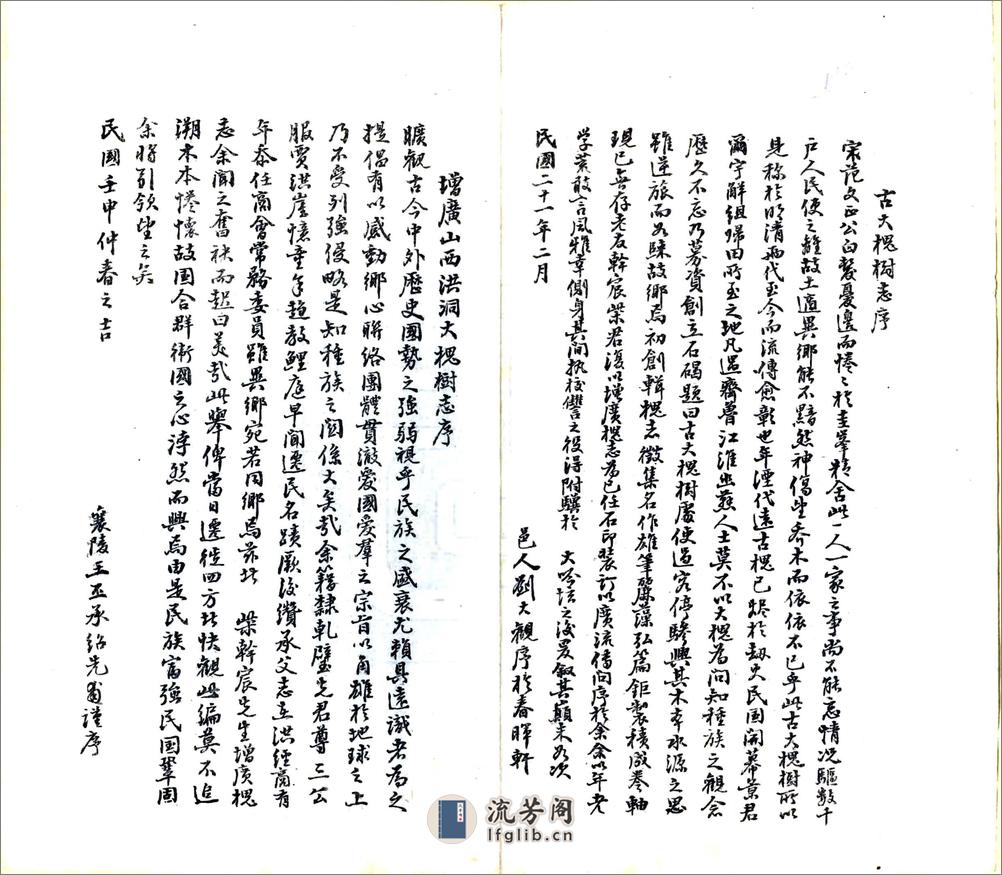 古大槐樹志序
宋范文正公白髮憂邊而惓々於圭峯精舍此一人一家之事尚不能忘情况驅數千
户人民使之離故土適異鄉能不黯然神傷望喬木而依依不已乎此古大槐樹所以
見称於明清兩代至今而流傳愈彰也年湮代遠古槐已燬於劫火民國開幕景君
爾宇解組歸田所至之地凡遇齊魯江淮幽燕人士莫不以大槐為問知種族之觀念
歷久不忘乃募資創立石碣題曰古大槐樹處使過客停驂興其木本水源之思
雖逆旅而如歸故鄉焉初創輯槐志徵集名作雄筆麗藻弘篇鉅製積成卷軸
現已無存老友幹宸柴君復以增廣槐志為己任石印裝訂以廣流傳問序於余余以年老
学荒敢言風雅幸側身其間执校讐之役得附驥於 大吟坛之後爰叙其顛末如次
民國二十一年二月
邑人劉大觀序於春暉軒
增廣山西洪洞大槐樹志序
曠觀古今中外歷史國勢之強弱視乎民族之盛衰尤賴具遠識者為之
提倡有以感動鄉心聯络團體貫澈愛國愛羣之宗旨以角雄於地球之上
乃不受列強侵略是知種族之関係大矣哉余籍隸軋璧先君尊三公
服賈洪崖憶童年趋教鯉庭早聞遷民名蹟厥後纘承父志在洪經商有
年忝任商會常務委員雖異鄉宛若同鄉焉茲於 柴幹宸先生增廣槐
志余聞之奮袂而起曰美哉此舉俾當日遷徙四方者快觀此編莫不追
溯木本惓懷故国合群衛國之心浡然而興焉由是民族富強民國鞏固
余將引領望之矣
民國壬申仲春之吉
襄陵王丕承绍先甫謹序
流芳阁
lfglib.cn